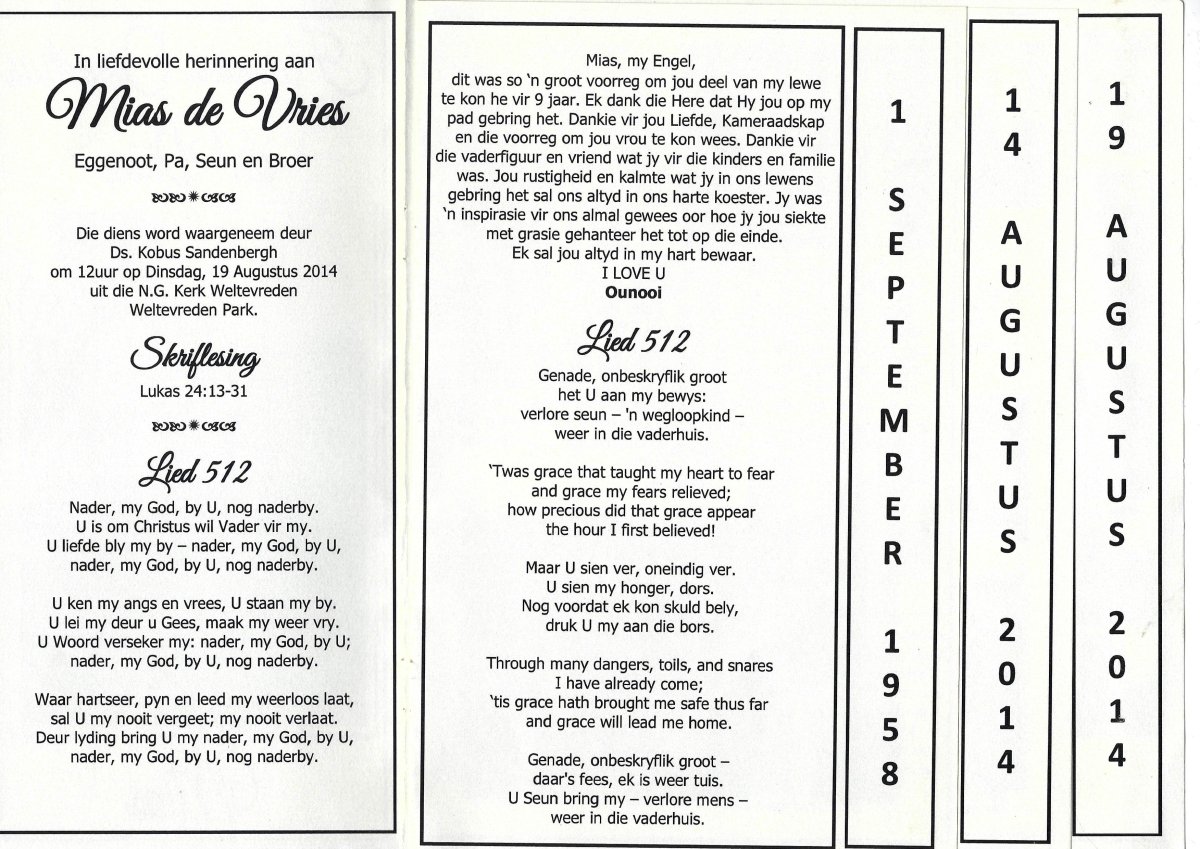 In liefdevolle herinnering aan
Mias de Vries
Eggenoot, Pa, Seun en Broer
Die diens word waargeneem deur
Ds. Kobus Sandenbergh
om 12uur op Dinsdag, 19 Augustus 2014
uit die N.G. Kerk Weltevreden
Weltevreden Park.
Skriflesing
Lukas 24:13-31
Lied 512
Nader, my God, by U, nog naderby.
U is om Christus wil Vader vir my.
U liefde bly my by – nader, my God, by U,
nader, my God, by U, nog naderby.
U ken my angs en vrees, U staan my by.
U lei my deur u Gees, maak my weer vry.
U Woord verseker my: nader, my God, by U;
nader, my God, by U, nog naderby.
Waar hartseer, pyn en leed my weerloos laat,
sal U my nooit vergeet; my nooit verlaat.
Deur lyding bring U my nader, my God, by U,
nader, my God, by U, nog naderby.
Mias, my Engel,
dit was so ‘n groot voorreg om jou deel van my lewe
te kon he vir 9 jaar. Ek dank die Here dat Hy jou op my
pad gebring het. Dankie vir jou Liefde, Kameraadskap
en die voorreg om jou vrou te kon wees. Dankie vir
die vaderfiguur en vriend wat jy vir die kinders en familie
was. Jou rustigheid en kalmte wat jy in ons lewens
gebring het sal ons altyd in ons harte koester. Jy was
‘n inspirasie vir ons almal gewees oor hoe jy jou siekte
met grasie gehanteer het tot op die einde.
Ek sal jou altyd in my hart bewaar.
I LOVE U
Ounooi
Lied 512
Genade, onbeskryflik groot
het U aan my bewys:
verlore seun – 'n wegloopkind –
weer in die vaderhuis.
‘Twas grace that taught my heart to fear
and grace my fears relieved;
how precious did that grace appear
the hour I first believed!
Maar U sien ver, oneindig ver.
U sien my honger, dors.
Nog voordat ek kon skuld bely,
druk U my aan die bors.
Through many dangers, toils, and snares
I have already come;
‘tis grace hath brought me safe thus far
and grace will lead me home.
Genade, onbeskryflik groot –
daar's fees, ek is weer tuis.
U Seun bring my – verlore mens –
weer in die vaderhuis.
1 SEPTEMBER 1958
14 AUGUSTUS 2014
19 AUGUSTUS 2014